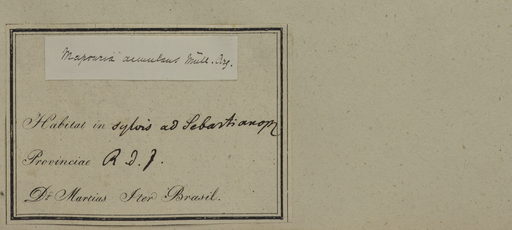 Mapouria aemulans Müll. Arg.
Habitat in sylvis ad Sebastianop
Provinciae R d. J.
Dr Martius Iter Brasil.